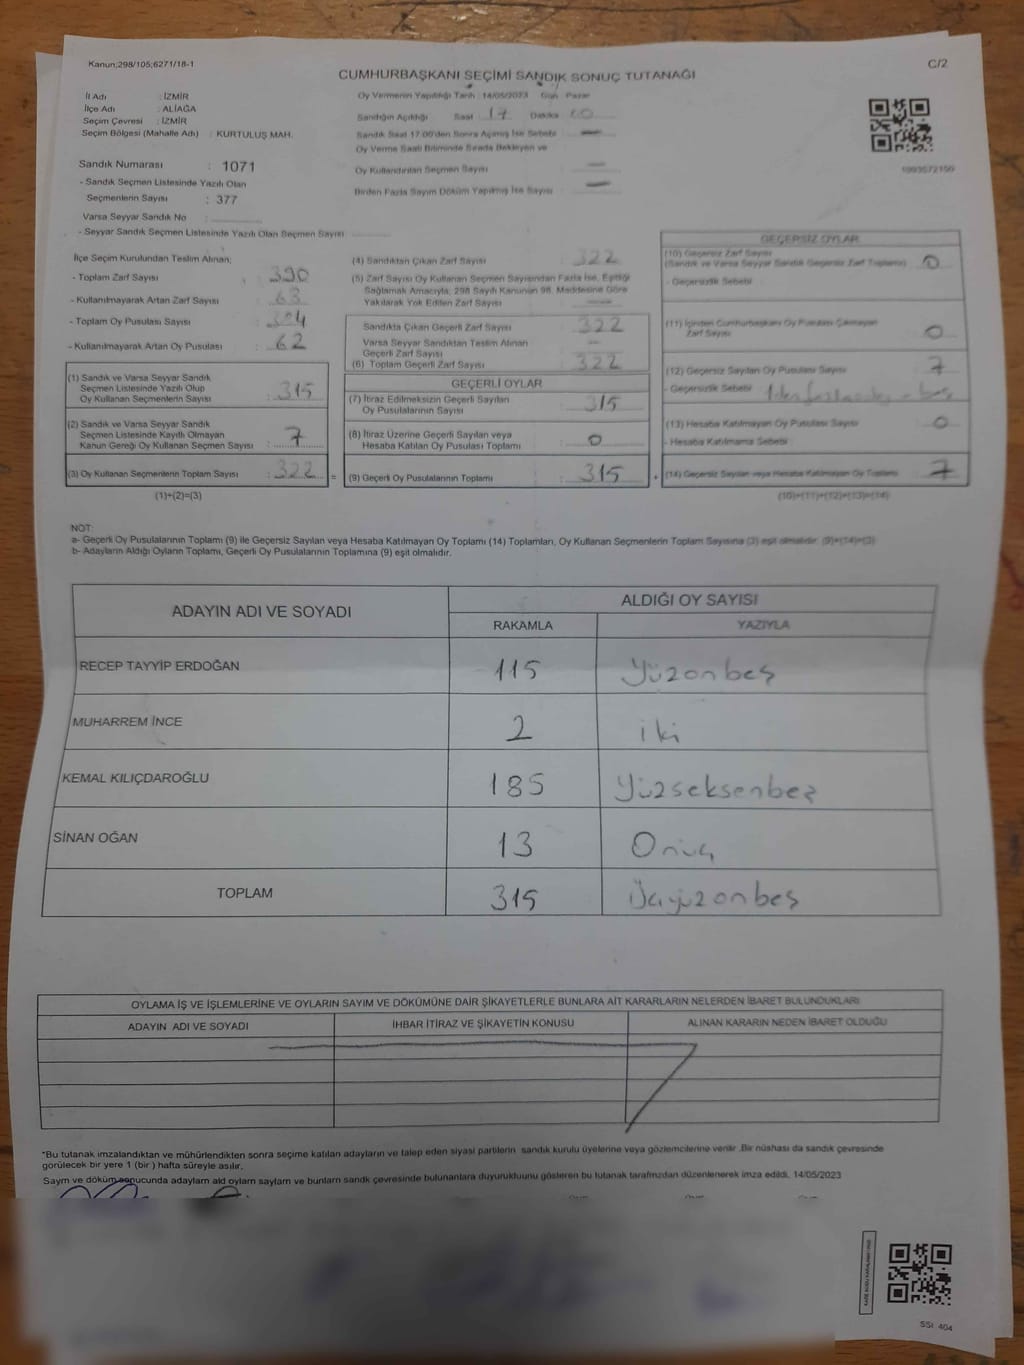 Kanun;298/105;6271/18-1
C/2
CUMHURBAŞKANI SEÇİMİ SANDIK SONUÇ TUTANAĞI
İl Adı : İZMİR
İlçe Adı : ALİAĞA
Seçim Çevresi : İZMİR
Seçim Bölgesi (Mahalle Adı) : KURTULUŞ MAH.
Oy Vermenin Yapıldığı Tarih : 14/05/2023 Gün Pazar
Sandığın Açıldığı Saat 17 Dakika 00
Sandık Saat 17.00'den Sonra Açılmış İse Sebebi
Oy Verme Saati Bitiminde Sırada Bekleyen ve
Oy Kullandırılan Seçmen Sayısı
Birden Fazla Sayım Döküm Yapılmış İse Sayısı
Sandık Numarası : 1071
- Sandık Seçmen Listesinde Yazılı Olan
Seçmenlerin Sayısı : 377
Varsa Seyyar Sandık No :
- Seyyar Sandık Seçmen Listesinde Yazılı Olan Seçmen Sayısı
İlçe Seçim Kurulundan Teslim Alınan;
- Toplam Zarf Sayısı : 390
- Kullanılmayarak Artan Zarf Sayısı : 63
- Toplam Oy Pusulası Sayısı : 384
- Kullanılmayarak Artan Oy Pusulası : 62
(1) Sandık ve Varsa Seyyar Sandık
Seçmen Listesinde Yazılı Olup
Oy Kullanan Seçmenlerin Sayısı : 315
(2) Sandık ve Varsa Seyyar Sandık
Seçmen Listesinde Kayıtlı Olmayan
Kanun Gereği Oy Kullanan Seçmen Sayısı : 7
(3) Oy Kullanan Seçmenlerin Toplam Sayısı : 322
(1)+(2)=(3)
(4) Sandıktan Çıkan Zarf Sayısı : 322
(5) Zarf Sayısı Oy Kullanan Seçmen Sayısından Fazla İse, Eşitliği
Sağlamak Amacıyla, 298 Sayılı Kanunun 98. Maddesine Göre
Yakılarak Yok Edilen Zarf Sayısı
Sandıkta Çıkan Geçerli Zarf Sayısı : 322
Varsa Seyyar Sandıktan Teslim Alınan
Geçerli Zarf Sayısı
(6) Toplam Geçerli Zarf Sayısı : 322
GEÇERLİ OYLAR
(7) İtiraz Edilmeksizin Geçerli Sayılan
Oy Pusulalarının Sayısı : 315
(8) İtiraz Üzerine Geçerli Sayılan veya
Hesaba Katılan Oy Pusulası Toplamı : 0
= (9) Geçerli Oy Pusulalarının Toplamı : 315 +
GEÇERSİZ OYLAR
(10) Geçersiz Zarf Sayısı
(Sandık ve Varsa Seyyar Sandık Geçersiz Zarf Toplamı) : 0
- Geçersizlik Sebebi
(11) İçinden Cumhurbaşkanı Oy Pusulası Çıkmayan
Zarf Sayısı : 0
(12) Geçersiz Sayılan Oy Pusulası Sayısı : 7
- Geçersizlik Sebebi
(13) Hesaba Katılmayan Oy Pusulası Sayısı : 0
- Hesaba Katılmama Sebebi :
(14) Geçersiz Sayılan veya Hesaba Katılmayan Oy Toplamı : 7
(10)+(11)+(12)+(13)=(14)
NOT:
a- Geçerli Oy Pusulalarının Toplamı (9) ile Geçersiz Sayılan veya Hesaba Katılmayan Oy Toplamı (14) Toplamları, Oy Kullanan Seçmenlerin Toplam Sayısına (3) eşit olmalıdır. (9)+(14)=(3)
b- Adayların Aldığı Oyların Toplamı, Geçerli Oy Pusulalarının Toplamına (9) eşit olmalıdır.
ADAYIN ADI VE SOYADI ALDIĞI OY SAYISI
RAKAMLA YAZIYLA
RECEP TAYYİP ERDOĞAN 115 Yüzonbeş
MUHARREM İNCE 2 iki
KEMAL KILIÇDAROĞLU 185 Yüzseksenbeş
SİNAN OĞAN 13 Onüç
TOPLAM 315 Üçyüzonbeş
OYLAMA İŞ VE İŞLEMLERİNE VE OYLARIN SAYIM VE DÖKÜMÜNE DAİR ŞİKAYETLERLE BUNLARA AİT KARARLARIN NELERDEN İBARET BULUNDUKLARI
ADAYIN ADI VE SOYADI İHBAR İTİRAZ VE ŞİKAYETİN KONUSU ALINAN KARARIN NEDEN İBARET OLDUĞU
*Bu tutanak imzalandıktan ve mühürlendikten sonra seçime katılan adayların ve talep eden siyasi partilerin sandık kurulu üyelerine veya gözlemcilerine verilir .Bir nüshası da sandık çevresinde
görülecek bir yere 1 (bir ) hafta süreyle asılır.
Sayım ve döküm sonucunda adayların ald oyların sayların ve bunların sandk çevresinde bulunanlara duyurulduunu gösteren bu tutanak tarafmzdan düzenlenerek imza edildi. 14/05/2023
SSI 404